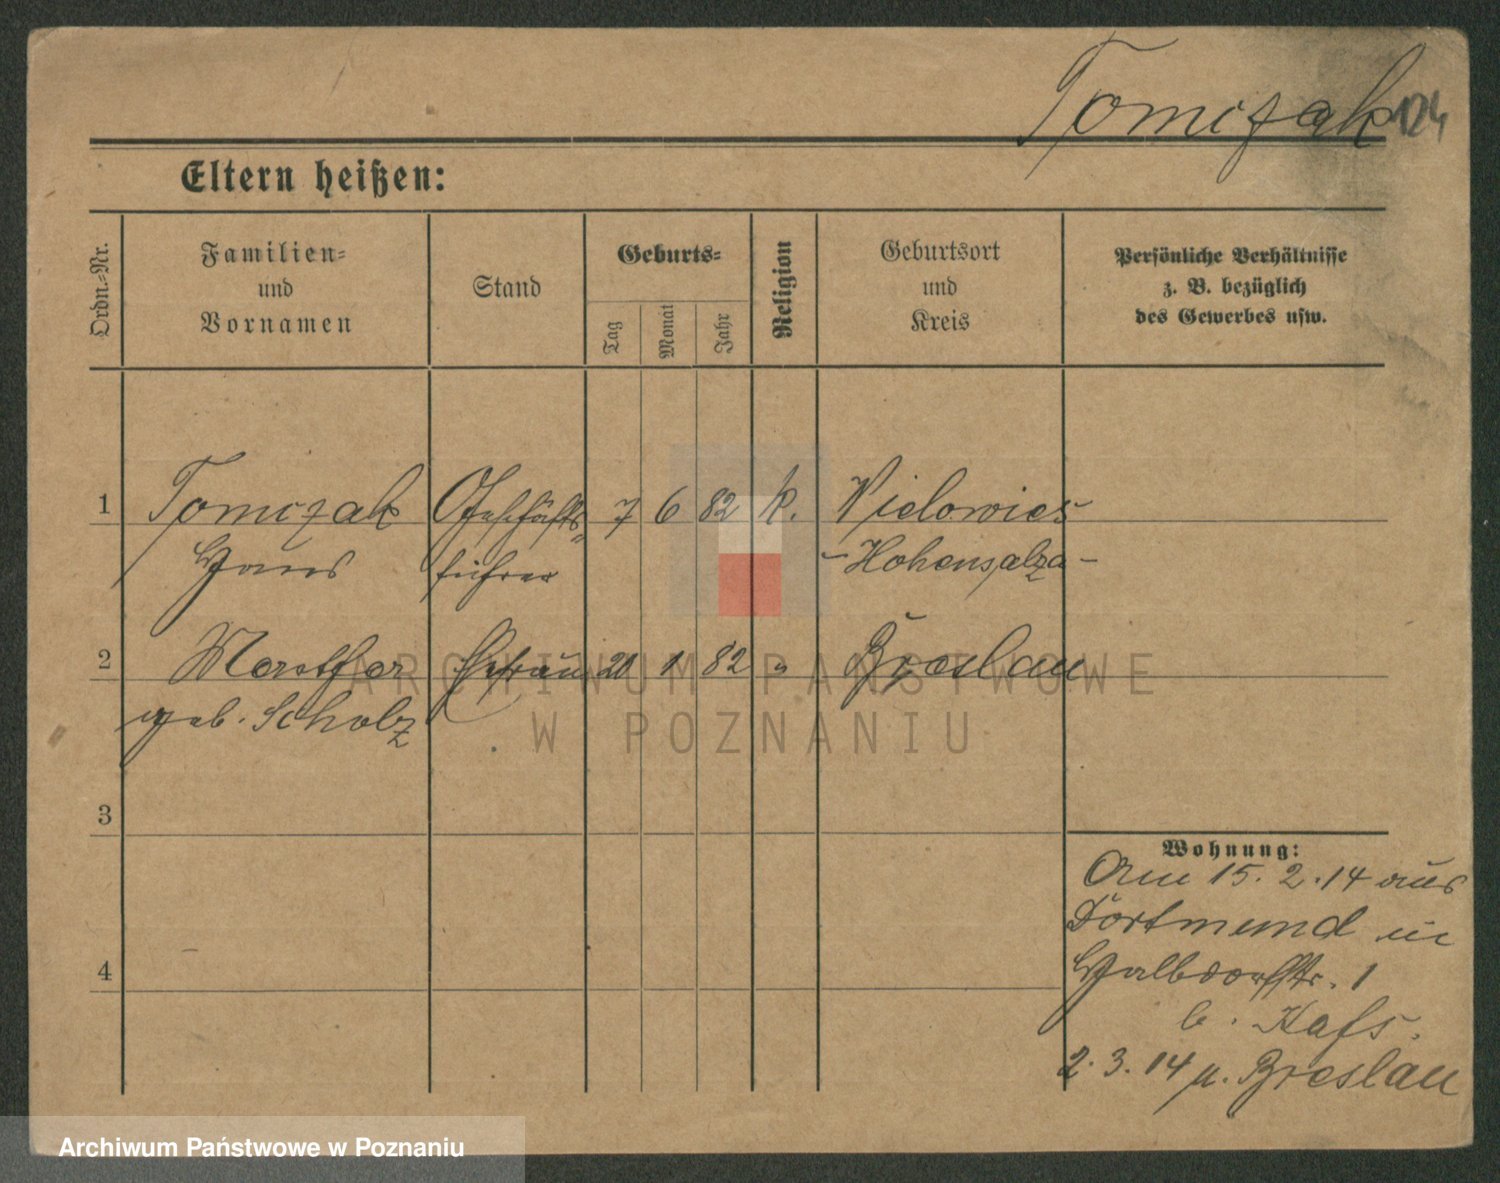 Tomczak 124
Eltern heißen:
Ordn.-Nr.
Familien-
und
Vornamen
Stand
Geburts-
Tag
Monat
Jahr
Religion
Geburtsort
und
Kreis
Persönliche Verhältnisse
z. B. bezüglich
des Gewerbes usw.
1 Tomczak Geschäfts- 7 6 82 k. Wielowies
Hans führer -Hohensalza-
2 Ehefrau 20 1 82 " Breslau
geb. Scholz
3
Wohnung:
Am 15.2.14 aus
Dortmund in
Halbdorfstr. 1
b.
4
2.3.14 n. Breslau
ARCHIWUM PAŃSTWOWE
W POZNANIU
Archiwum Państwowe w Poznaniu